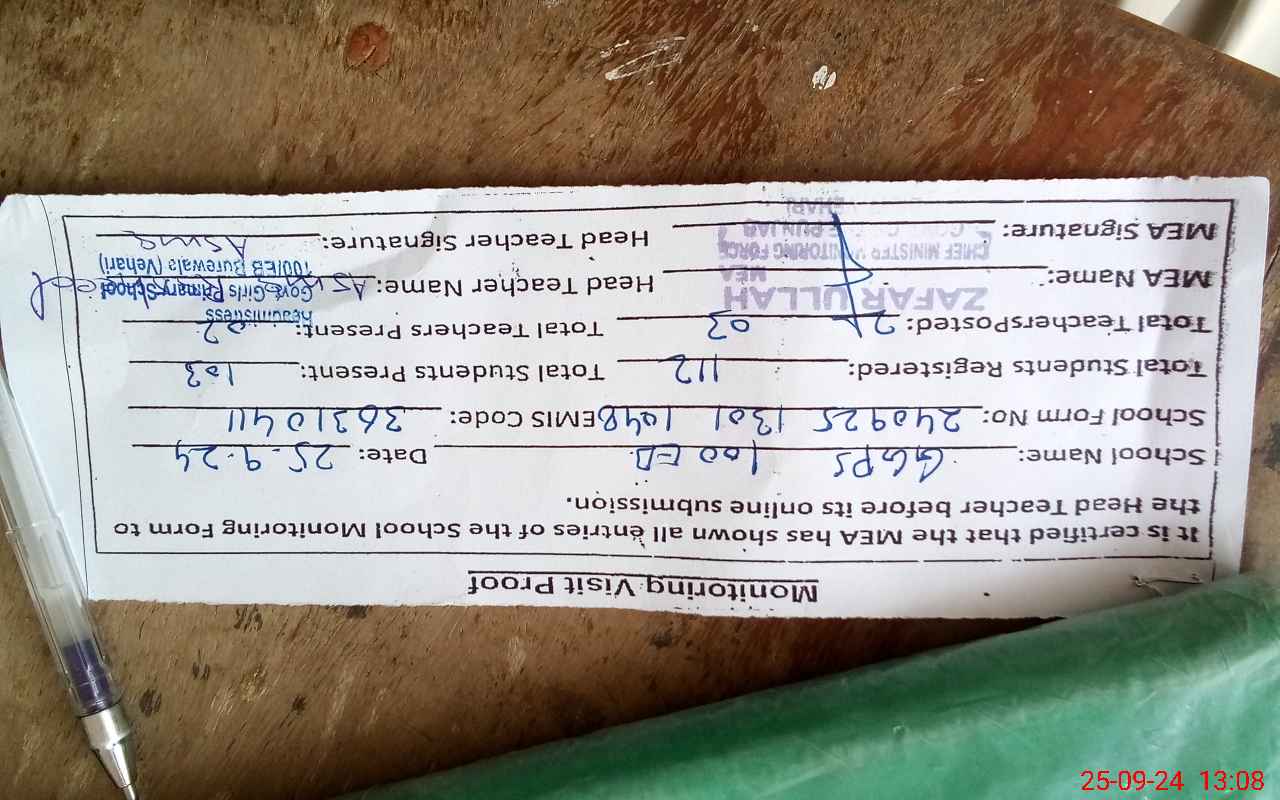 Monitoring Visit Proof
It is certified that the MEA has shown all entries of the School Monitoring Form to
the Head Teacher before its online submission.
School Name: GGPS 100 EB Date: 25-9-24
School Form No: 240925 1301 1048 EMIS Code: 36310411
Total Students Registered: 112 Total Students Present: 103
Total TeachersPosted: 03 Total Teachers Present: 02
Headmistress
ZAFAR ULLAH
MEA
MEA Name: Head Teacher Name:
Govt. Girls Primary School
100/EB Burewala (Vehari)
CHIEF MINISTER MONITORING FORCE
MEA Signature: Head Teacher Signature: Asma
VEHARI
25-09-24 13:08